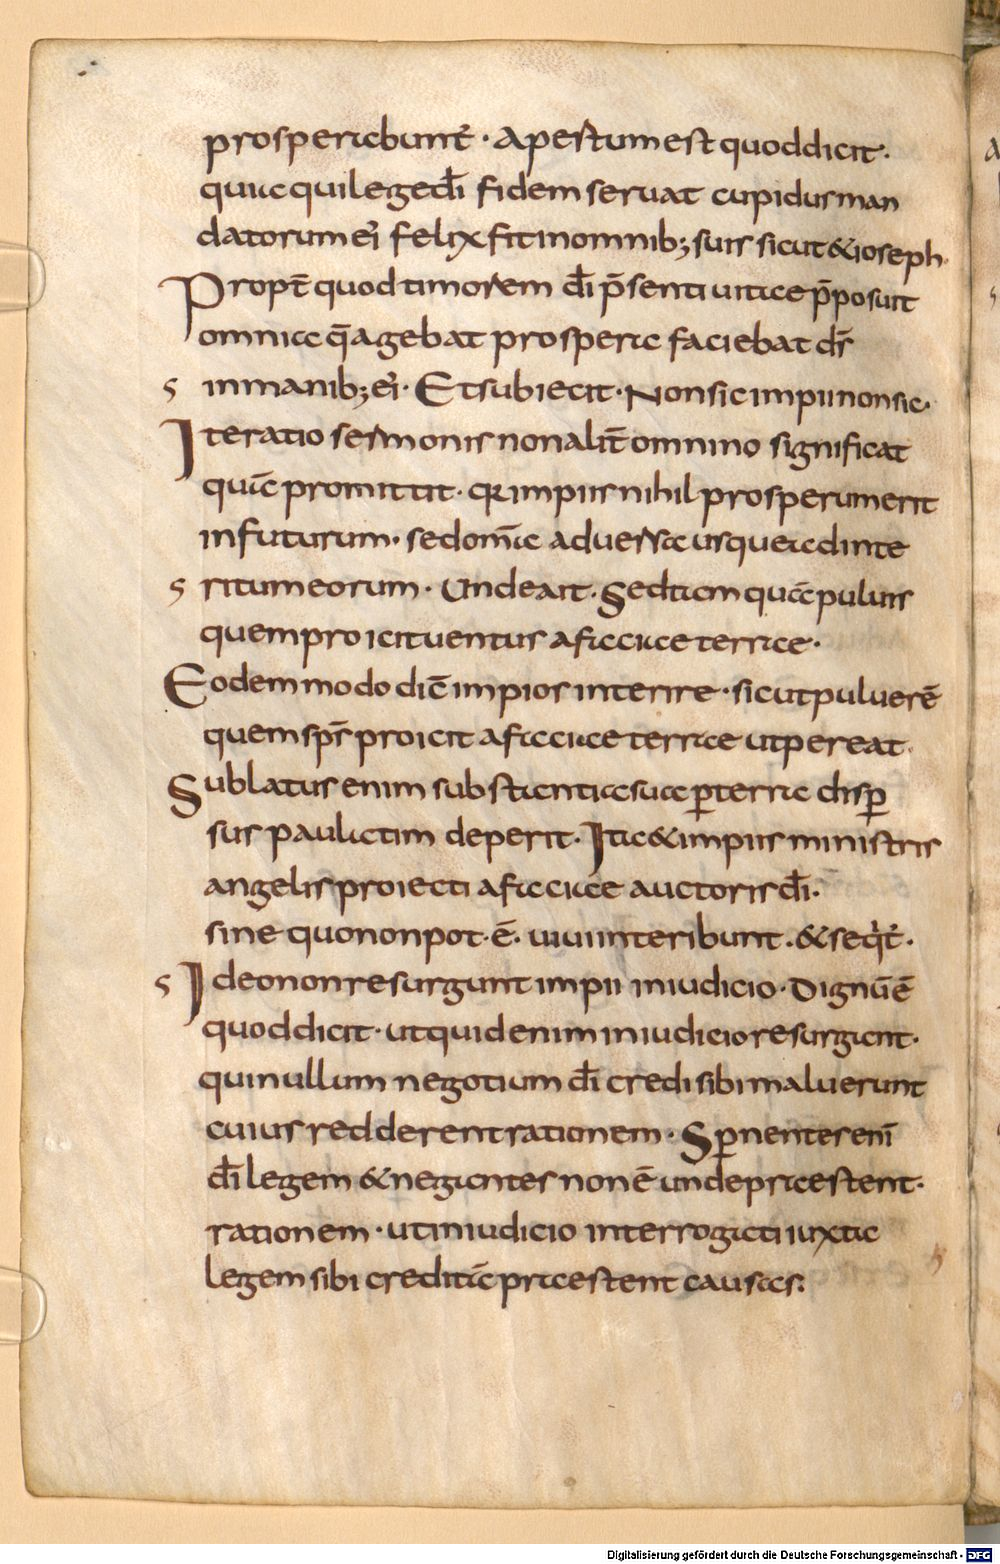 prosperabunt̄· Apertum est quod dicit·
quia qui lege dī fidem seruat cupidus man
datorum ei᾽ felix fit in omnib; suis sicut & ioseph·
Propt̄ quod timorem dī p̄senti uitae p̄posuit
omnia q̄ agebat prospera faciebat dn̄s
in manib; ei᾽· Et subiecit· Non sic impii non sic·
Iteratio sermonis non alit̄ omnino significat
quā promittit· qr impiis nihil prosperum erit
in futurum· sed om̄a aduersa usque ad inte
ritum eorum· Unde ait· Sed tam quā puluis
quem proicit uentus a faciae terrae·
Eodem modo dic̄ impios interire· sicut puluerē
quem sps̄ proicit a faciae terrae ut pereat·
Sublatus enim substantia sua p̱ terra disp̱
sus paulatim deperit· Ita & impiis ministris
angelis proiecti a faciae auctoris dī·
sine quo non pot· ē· uiui interibunt· & seq̄t̄·
Ideo non resurgunt impii in iudicio· Dignū ē
quod dicit· ut quid enim in iudicio resurgant·
qui nullum negotium dī credi sibi maluerunt
cuius redderent rationem· Sp̱nentes eni᾽
dī legem & negantes non ē unde praestent·
rationem· ut in iudicio interrogati iuxta
legem sibi creditā praestent causas:
Digitalisierung gefördert durch die Deutsche Forschungsgemeinschaft - DFG